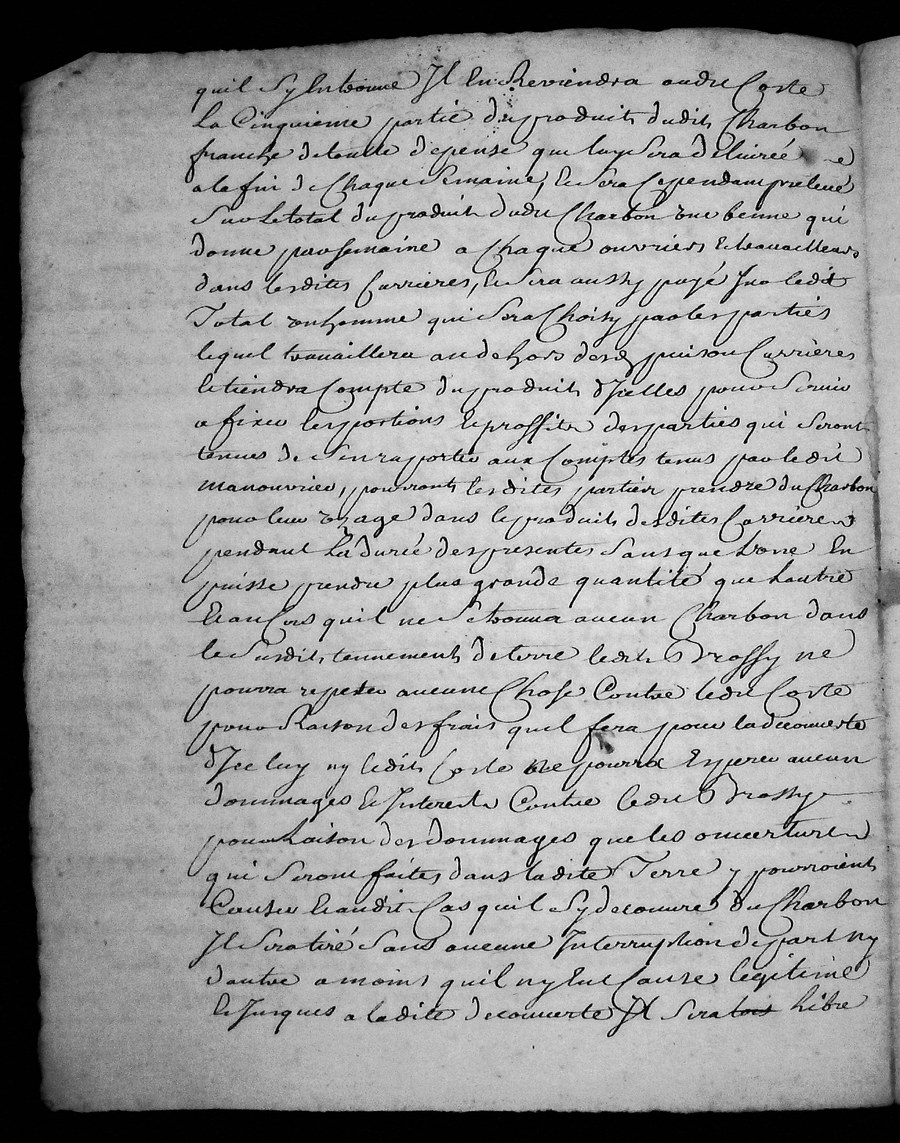 quil Sy Entrouve Jl En Reviendra audit Coste
La Cinquieme partie du produit dudit Charbon
franche detoutte depense que luy Sera delivrée
a la fin de Chaque Semaine, Et Sera Cependant prelevé
Sur Le total du produit dudit Charbon une benne qui
donne par Semaine a Chaque ouvriers Et travailleurs
dans lesdites Carrieres, Et Sera aussy payé Sur ledit
Total un homme qui Sera Choisy par les parties
lequel travaillera au dehors desd puis ou Carrieres
Et tiendra Compte du produit d'Jcelles pour Servir
a fixer les portions Et proffits des parties qui Seront
tenues de Sen raporter aux Comptes tenus par ledit
manouvrier, pourront lesdites parties prendre du Charbon
pour leur uzage dans le produit desdites Carrieres
pendant La durée des presentes Sans que L'une En
puisse prendre plus grande quantité que Lautre
Et au Cas quil ne Se trouva aucun Charbon dans
le Susdit tennement de terre ledit Brossy ne
pourra repeter aucune Chose Contre ledit Coste
pour Raison des frais quil fera pour la decouverte
d'Jceluy ny ledit Coste ne pourra Esperer aucun
dommages Et Interests Contre ledit Brossy
pour Raison des dommages que les ouvertures
qui Seront faites dans ladite Terre y pourroient
Causer Et audit Cas quil Sy decouvre du Charbon
Jl Sera tiré Sans aucune Interruption de part ny
dautre a moins quil ny Eut Cause legitime
Et Jusques a ladite decouverte Jl Sera Libre